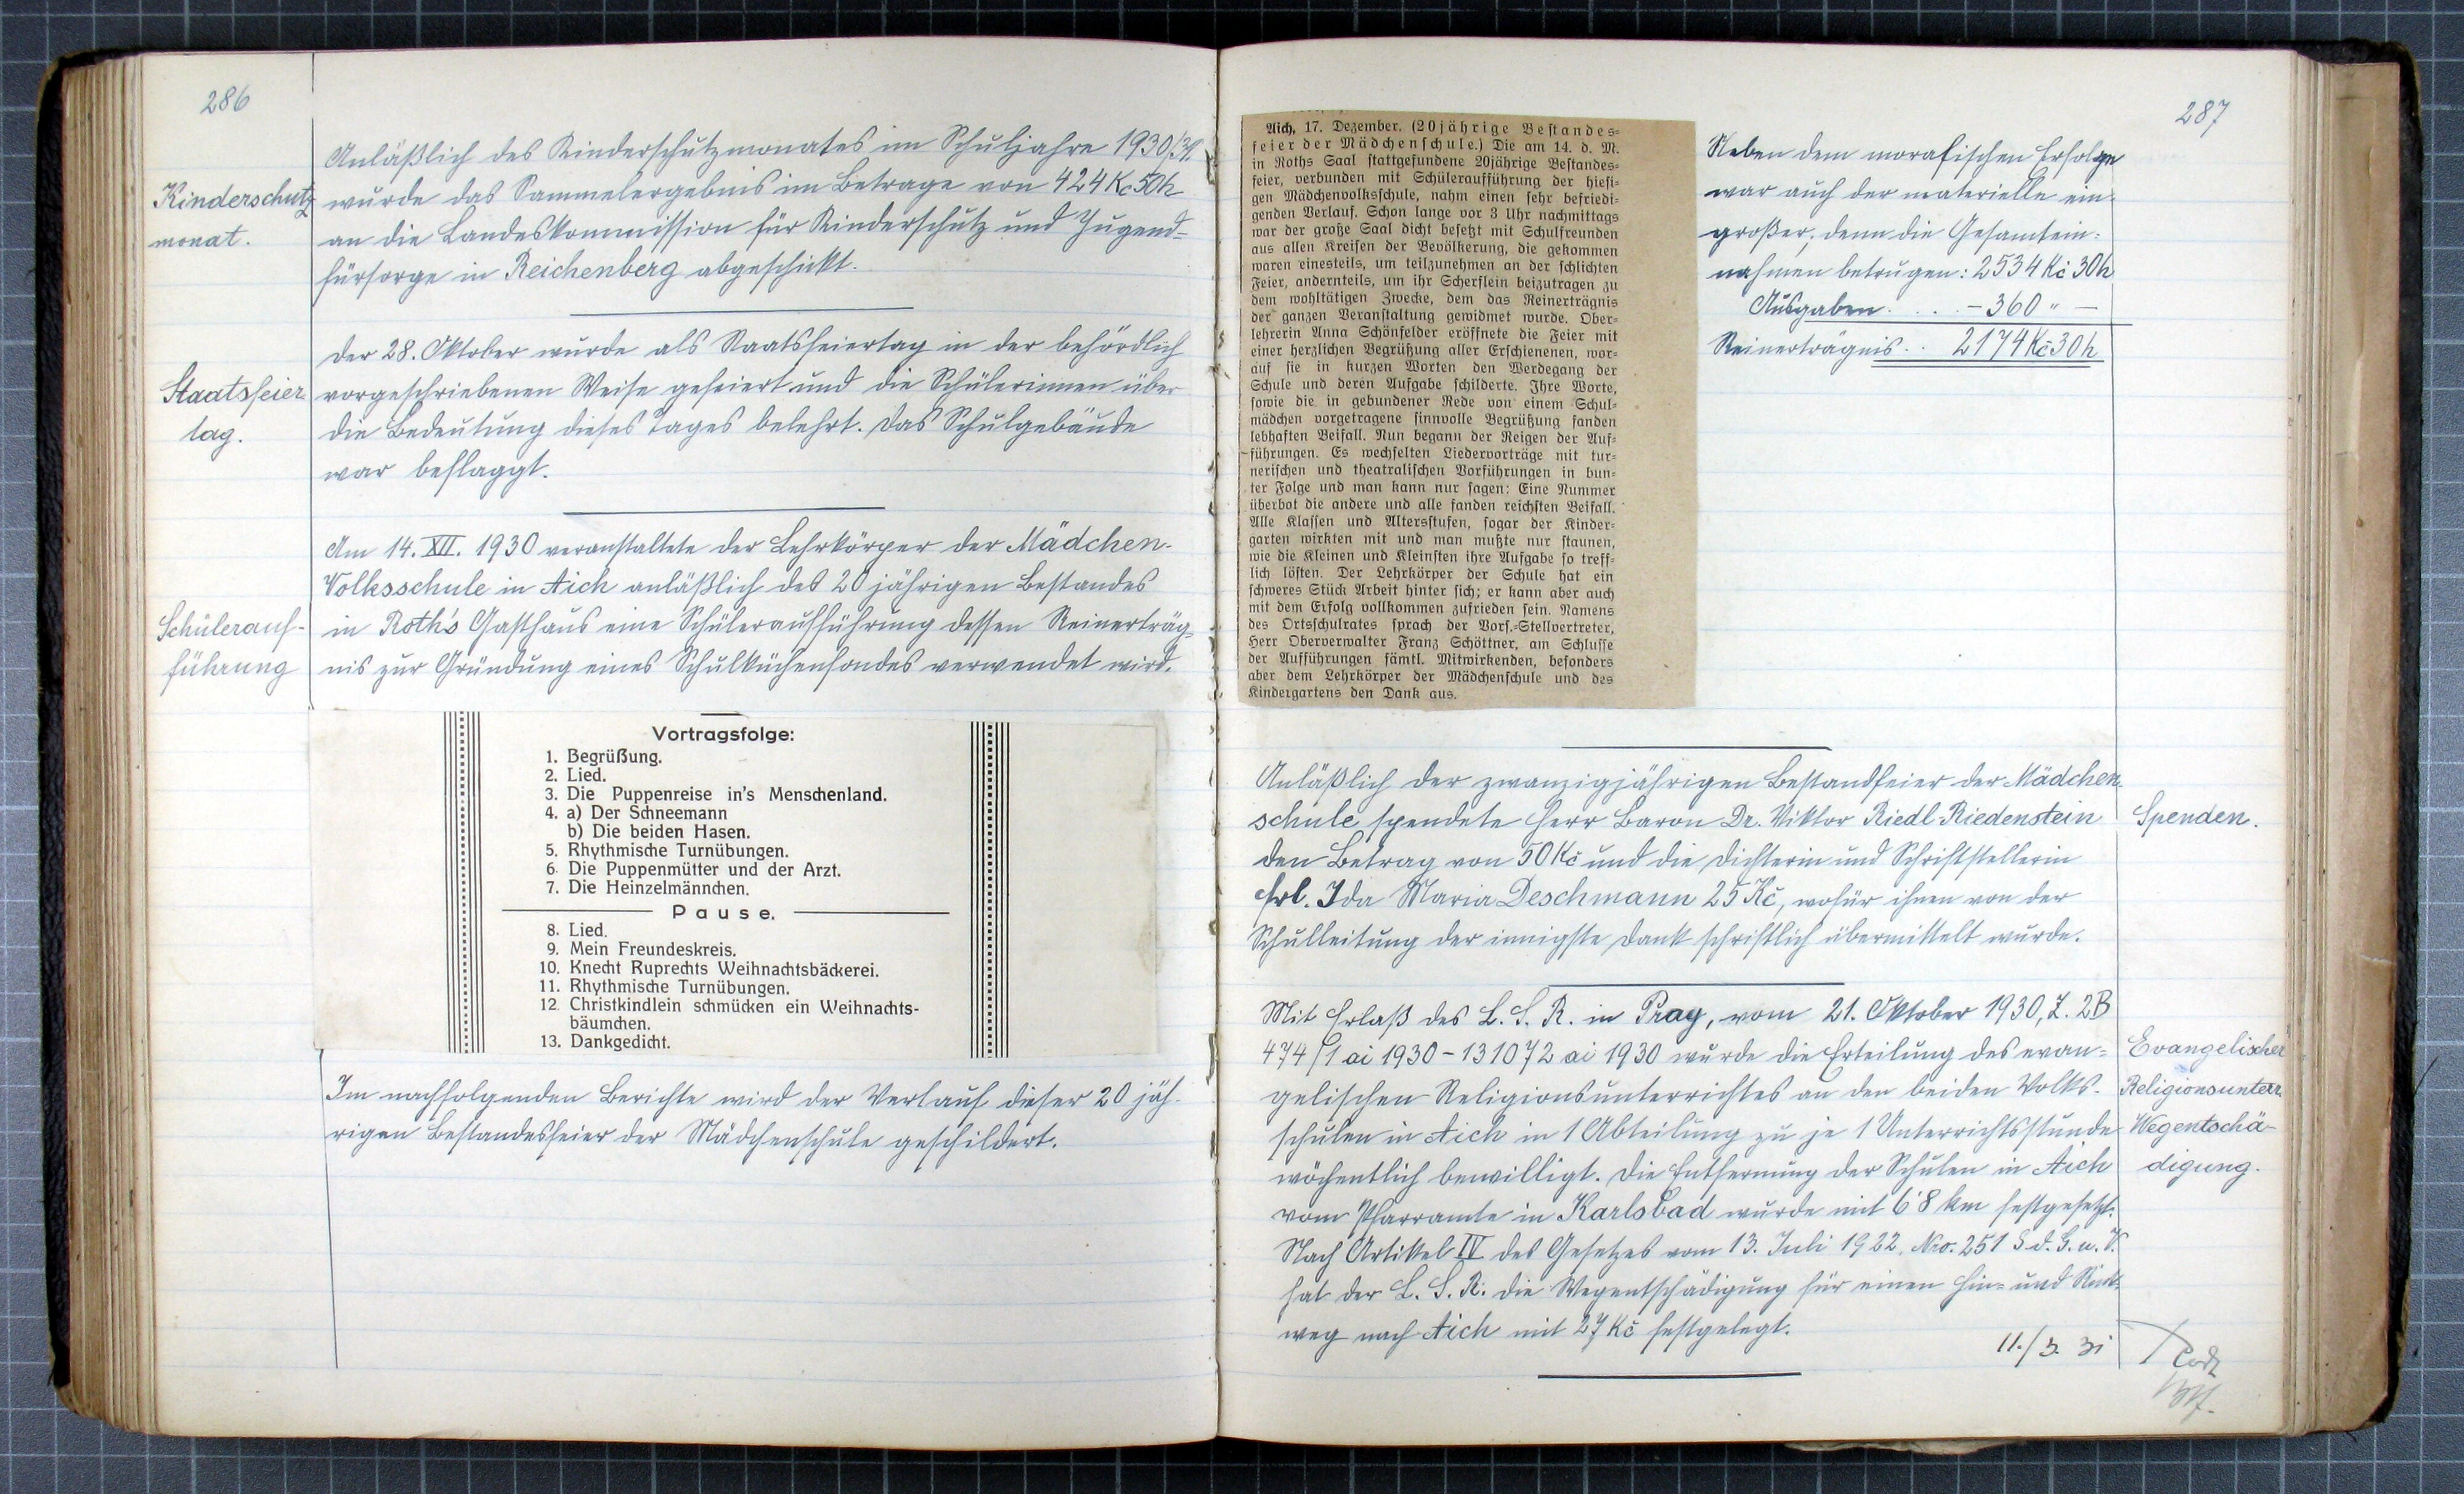 286
Anläßlich des Kinderschutzmonates im Schuljahre 1930/31.
Kinderschutz
monat.
wurde das Sammelergebnis im Betrage von 424 Kc 50h
an die Landeskommission für Kinderschutz und Jugend-
fürsorge in Reichenberg abgeschickt.
Staatsfeier
tag.
Der 28. Oktober wurde als Staatsfeiertag in der behördlich
vorgeschriebenen Weise gefeiert und die Schülerinnen über
die Bedeutung dieses Tages belehrt. Das Schulgebäude
war beflaggt.
Schülerauf-
führung
Am 14. XII. 1930 veranstaltete der Lehrkörper der Mädchen-
Volksschule in Aich anläßlich des 20 jährigen Bestandes
in Roth's Gasthaus eine Schüleraufführung dessen Reinerträg-
nis zur Gründung eines Schulküchenfondes verwendet wird.
Vortragsfolge:
1. Begrüßung.
2. Lied.
3. Die Puppenreise in's Menschenland.
4. a) Der Schneemann
b) Die beiden Hasen.
5. Rhythmische Turnübungen.
6. Die Puppenmütter und der Arzt.
7. Die Heinzelmännchen.
Pause.
8. Lied.
9. Mein Freundeskreis.
10. Knecht Ruprechts Weihnachtsbäckerei.
11. Rhythmische Turnübungen.
12. Christkindlein schmücken ein Weihnachts-
bäumchen.
13. Dankgedicht.
Im nachfolgenden Berichte wird der Verlauf dieser 20 jäh-
rigen Bestandesfeier der Mädchenschule geschildert.
287
Aich, 17. Dezember. (20jährige Bestandes-
feier der Mädchenschule.) Die am 14. d. M.
in Roths Saal stattgefundene 20jährige Bestandes-
feier, verbunden mit Schüleraufführung der hiesi-
gen Mädchenvolksschule, nahm einen sehr befriedi-
genden Verlauf. Schon lange vor 3 Uhr nachmittags
war der große Saal dicht besetzt mit Schulfreunden
aus allen Kreisen der Bevölkerung, die gekommen
waren einesteils, um teilzunehmen an der schlichten
Feier, andernteils, um ihr Scherflein beizutragen zu
dem wohltätigen Zwecke, dem das Reinerträgnis
der ganzen Veranstaltung gewidmet wurde. Ober-
lehrerin Anna Schönfelder eröffnete die Feier mit
einer herzlichen Begrüßung aller Erschienenen, wor-
auf sie in kurzen Worten den Werdegang der
Schule und deren Aufgabe schilderte. Ihre Worte,
sowie die in gebundener Rede von einem Schul-
mädchen vorgetragene sinnvolle Begrüßung fanden
lebhaften Beifall. Nun begann der Reigen der Auf-
führungen. Es wechselten Liedervorträge mit tur-
nerischen und theatralischen Vorführungen in bun-
ter Folge und man kann nur sagen: Eine Nummer
überbot die andere und alle fanden reichsten Beifall.
Alle Klassen und Altersstufen, sogar der Kinder-
garten wirkten mit und man mußte nur staunen,
wie die Kleinen und Kleinsten ihre Aufgabe so treff-
lich lösten. Der Lehrkörper der Schule hat ein
schweres Stück Arbeit hinter sich; er kann aber auch
mit dem Erfolg vollkommen zufrieden sein. Namens
des Ortsschulrates sprach der Vors.-Stellvertreter,
Herr Oberverwalter Franz Schöttner, am Schlusse
der Aufführungen sämtl. Mitwirkenden, besonders
aber dem Lehrkörper der Mädchenschule und des
Kindergartens den Dank aus.
Neben dem moralischen Erfolge
war auch der materielle ein
großer, denn die Gesamtein-
nahmen betrugen: 2534 Kč 30h
Ausgaben . . . . - 360 " -
Reinerträgnis . . 2174 Kč 30h
Anläßlich der zwanzigjährigen Bestandfeier der Mädchen-
schule spendete Herr Baron Dr. Viktor Riedl-Riedenstein
den Betrag von 50 Kč und die Dichterin und Schriftstellerin
Frl. Ida Maria Deschmann 25 Kč, wofür ihnen von der
Schulleitung der innigste Dank schriftlich übermittelt wurde.
Spenden.
Mit Erlaß des L. S. R. in Prag, vom 21. Oktober 1930, Z. 2B
474/1 ai 1930 - 131072 ai 1930 wurde die Erteilung des evan-
gelischen Religionsunterrichtes an den beiden Volks-
schulen in Aich in 1 Abteilung zu je 1 Unterrichtsstunde
wöchentlich bewilligt. Die Entfernung der Schulen in Aich
vom Pfarramte in Karlsbad wurde mit 6'8 km festgesetzt.
Nach Artikel IV des Gesetzes vom 13. Juli 1922, Nro. 251 S. d. G. u. V.
hat der L. S. R. die Wegentschädigung für einen Hin- und Rück-
weg nach Aich mit 27 Kč festgelegt.
Evangelischer
Religionsunterr.
Wegentschä-
digung.
11./3. 31